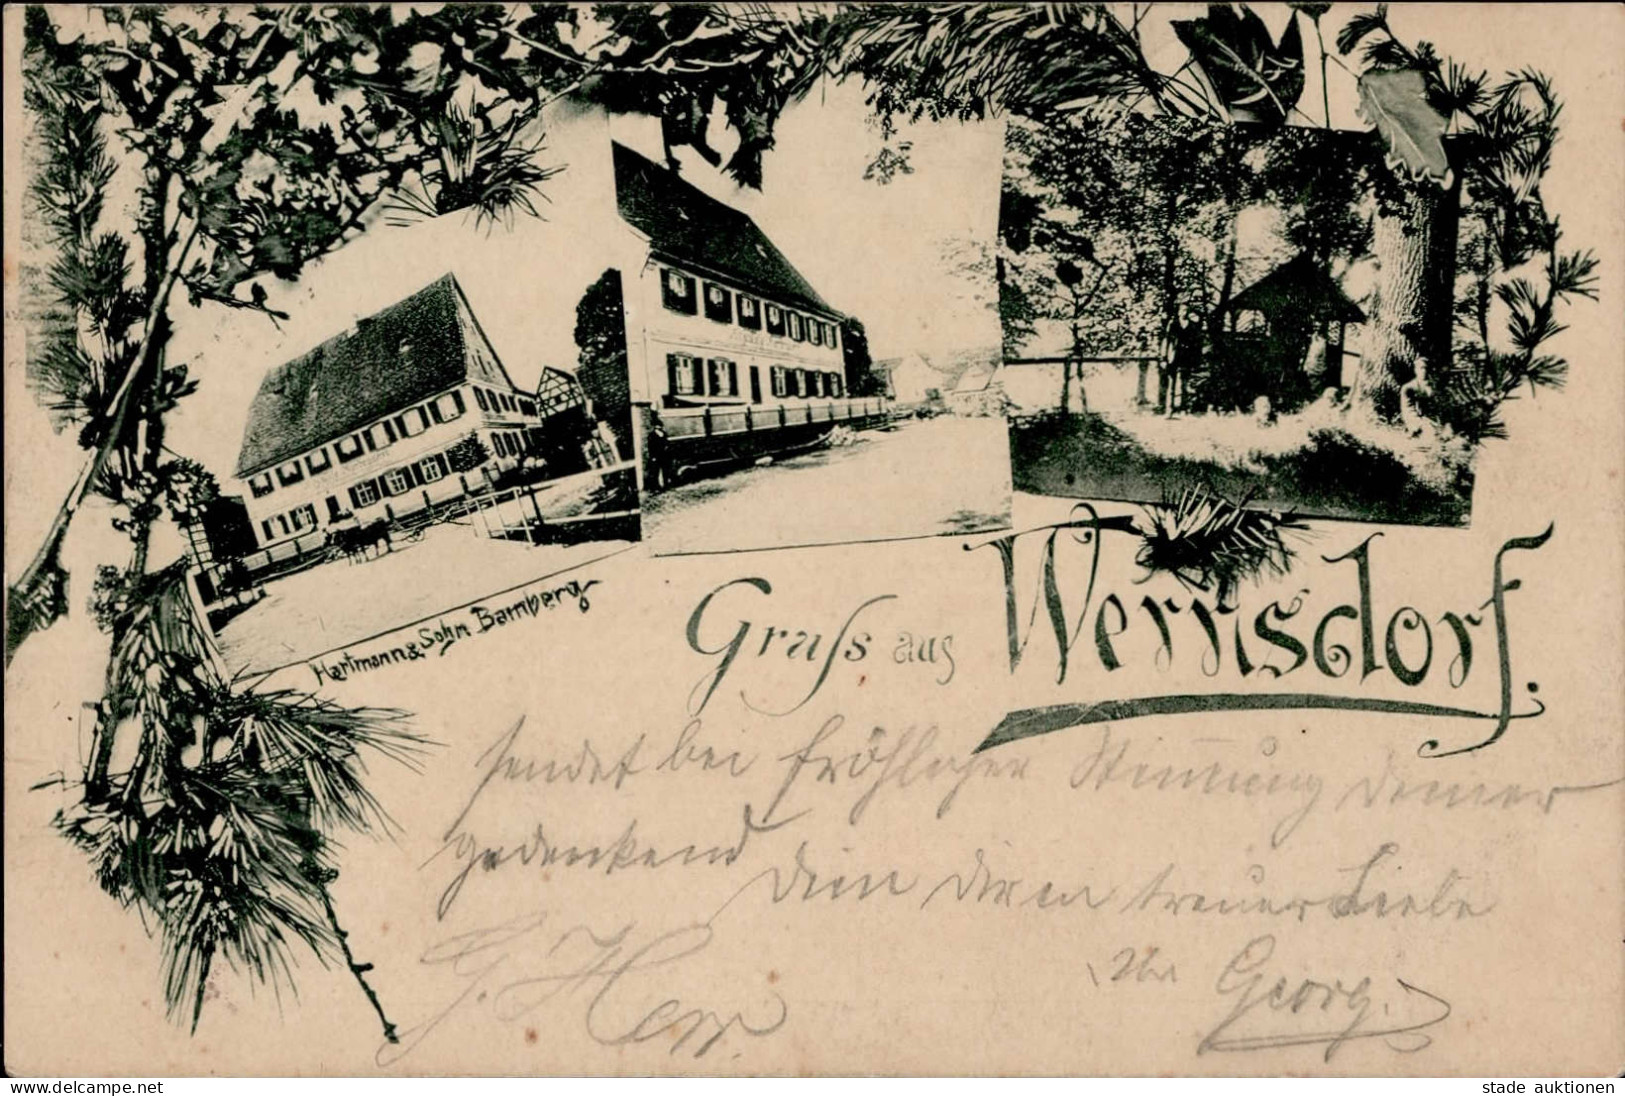 Hartmann & Sohn Bamberg
Gruß aus Wernsdorf.
sendet bei fröhlicher Stimmung deiner
gedenkend
Dein Dir in treuer Liebe
Georg.
G. Herr
delcampe.net
stade auktionen